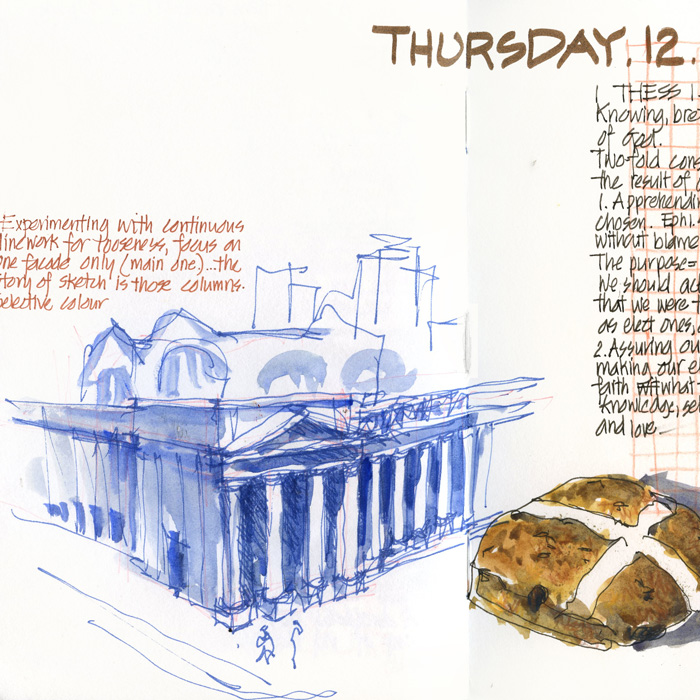 THURSDAY. 12.
Experimenting with continuous
linework for looseness, focus on
one facade only (main one)...the
story of sketch is those columns.
selective colour
1 THESS 1.
Knowing, bre
of God.
Two-fold cons
the result of
1. Apprehendin
chosen. Eph1.
without blame
The purpose=
We should ac
that we were
as elect ones,
2. Assuring ou
making our el
faith what
knowledge, sel
and love